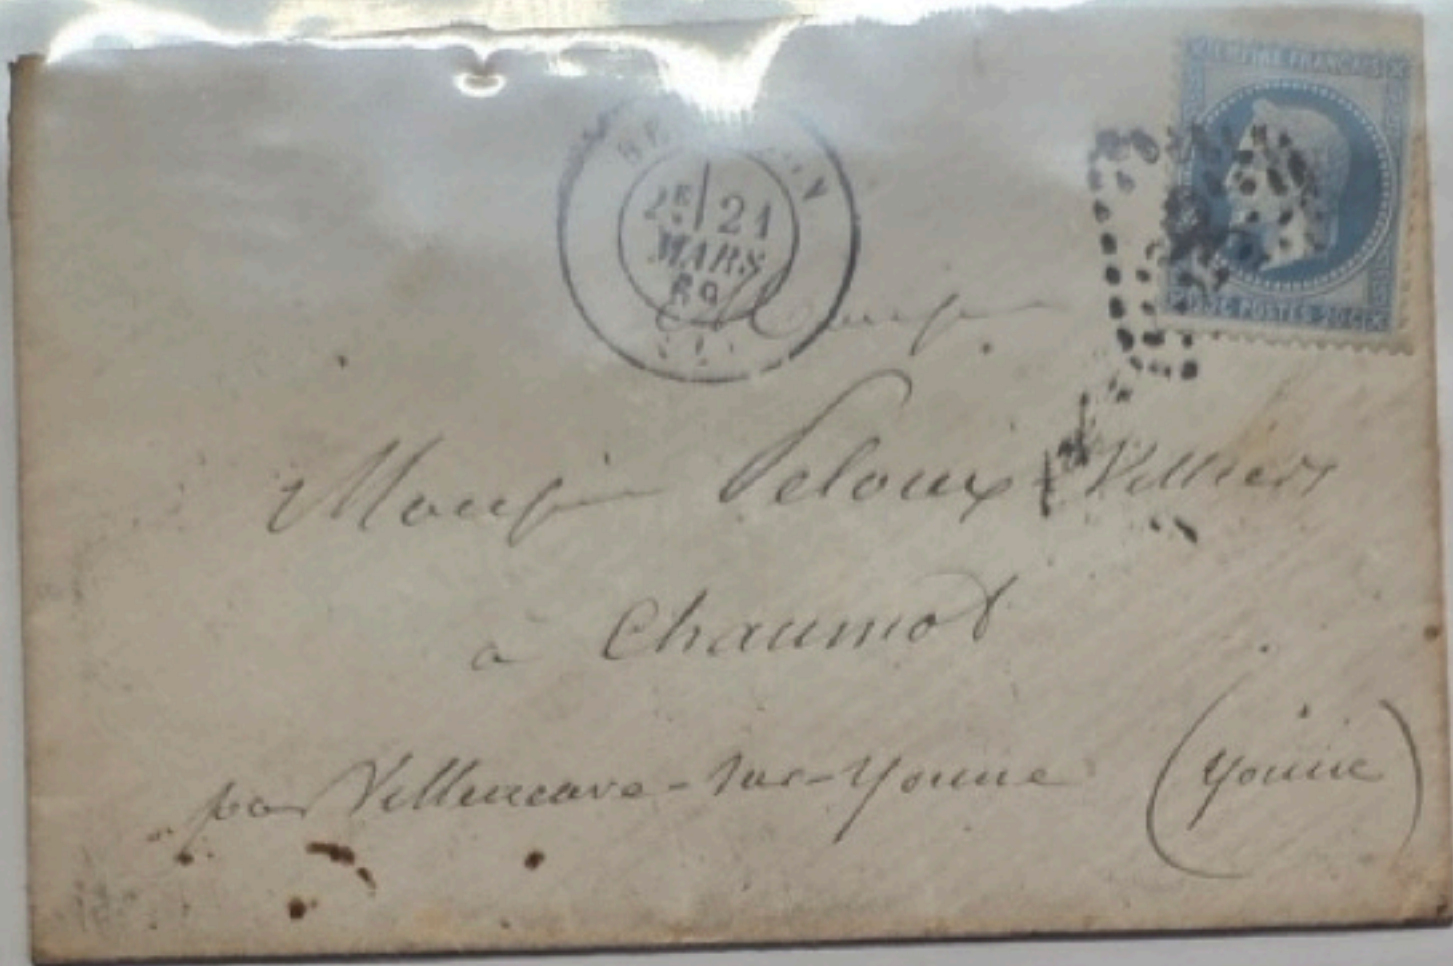 EMPIRE FRANÇAIS
2E 21
MARS
69
POSTES 20 C
Monsieur
Monsieur Peloux-Villiers
à Chaumot
par Villeneuve-sur-Yonne (Yonne)